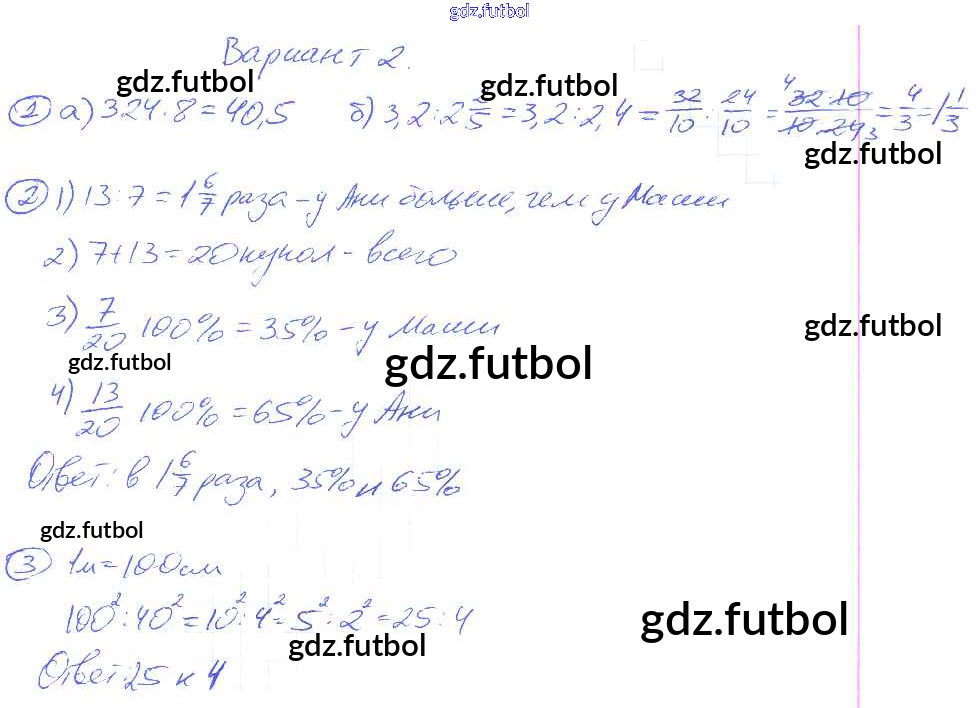 gdz.futbol
Вариант 2.
gdz.futbol gdz.futbol
① а) 324 : 8 = 40,5 б) 3,2 : 2 2/5 = 3,2 : 2,4 = 32/10 : 24/10 = 4 32·10 / 10·24 3 = 4/3 = 1 1/3
gdz.futbol
② 1) 13 : 7 = 1 6/7 раза - у Ани больше, чем у Маши
2) 7+13 = 20 кукол - всего
3) 7/20 · 100% = 35% - у Маши
gdz.futbol
gdz.futbol gdz.futbol
4) 13/20 · 100% = 65% - у Ани
Ответ: в 1 6/7 раза, 35% и 65%
gdz.futbol
③ 1м = 100см
100² : 40² = 10² : 4² = 5² : 2² = 25 : 4
gdz.futbol gdz.futbol
Ответ: 25 к 4